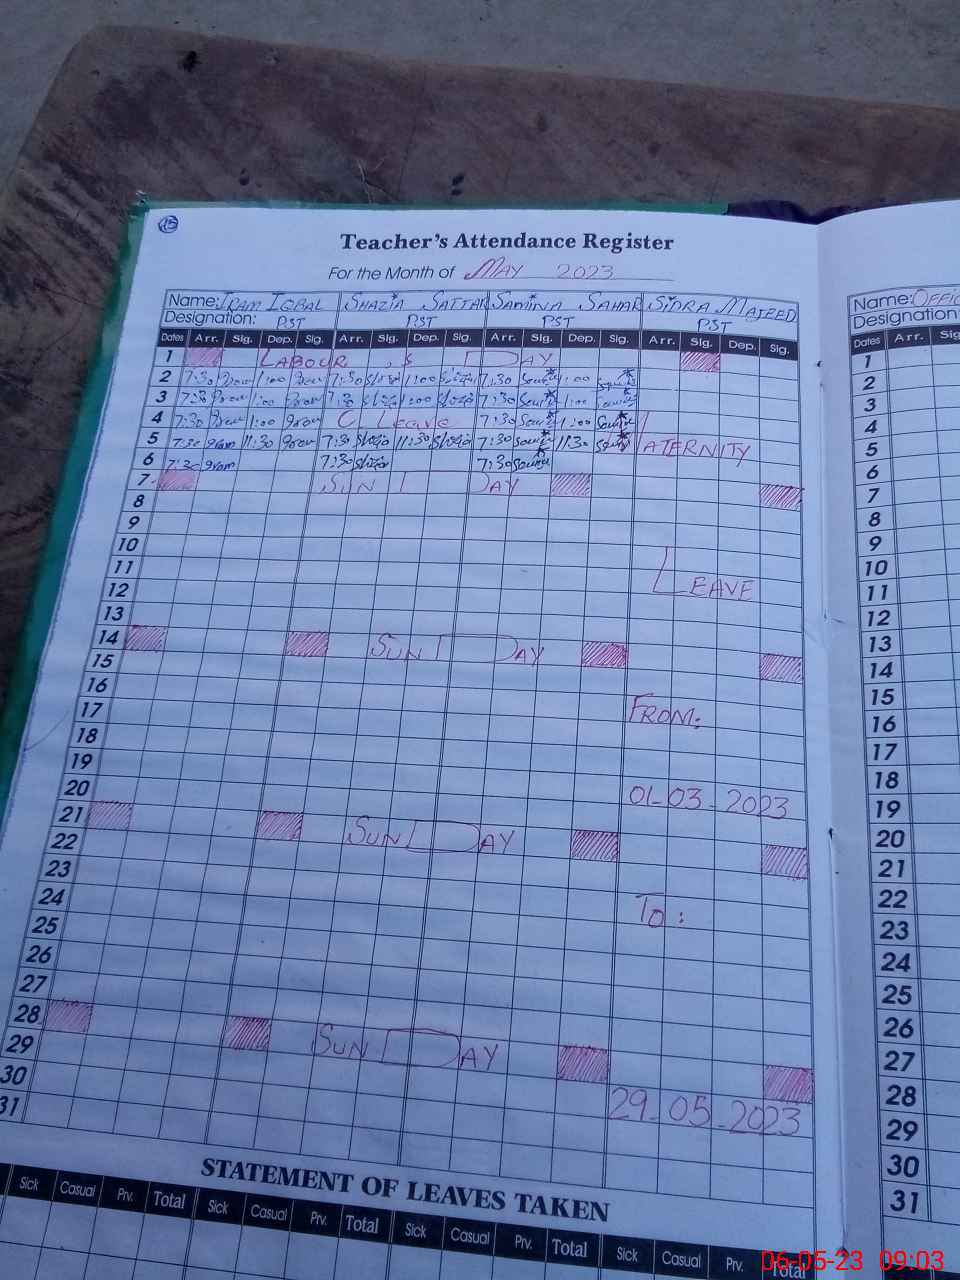 15
Teacher's Attendance Register
For the Month of MAY 2023
Name: IRAM IQBAL SHAZIA SATTAR SAMINA SAHAR SIDRA MAJEED
Designation: PST PST PST PST
Dates Arr. Sig. Dep. Sig. Arr. Sig. Dep. Sig. Arr. Sig. Dep. Sig. Arr. Sig. Dep. Sig.
1 LABOUR ,S DAY
2 7:30 1:00 7:30 1:00 7:30 1:00
3 7:30 1:00 7:30 1:00 7:30 1:00
4 7:30 1:00 C Leave 7:30 1:00
5 7:30 11:30 7:30 11:30 7:30 11:30 MATERNITY
6 7:30 7:30 7:30
7 SUN DAY
8
9
10
11
12 LEAVE
13
14 SUN DAY
15
16
17 FROM:
18
19
20 01-03-2023
21
22 SUN DAY
23
24 To:
25
26
27
28
29 SUN DAY
30
31 29-05-2023
STATEMENT OF LEAVES TAKEN
Sick Casual Prv. Total Sick Casual Prv. Total Sick Casual Prv. Total Sick Casual Prv. Total
Name: OFFIC
Designation:
Dates Arr. Sig
1
2
3
4
5
6
7
8
9
10
11
12
13
14
15
16
17
18
19
20
21
22
23
24
25
26
27
28
29
30
31
06-05-23 09:03